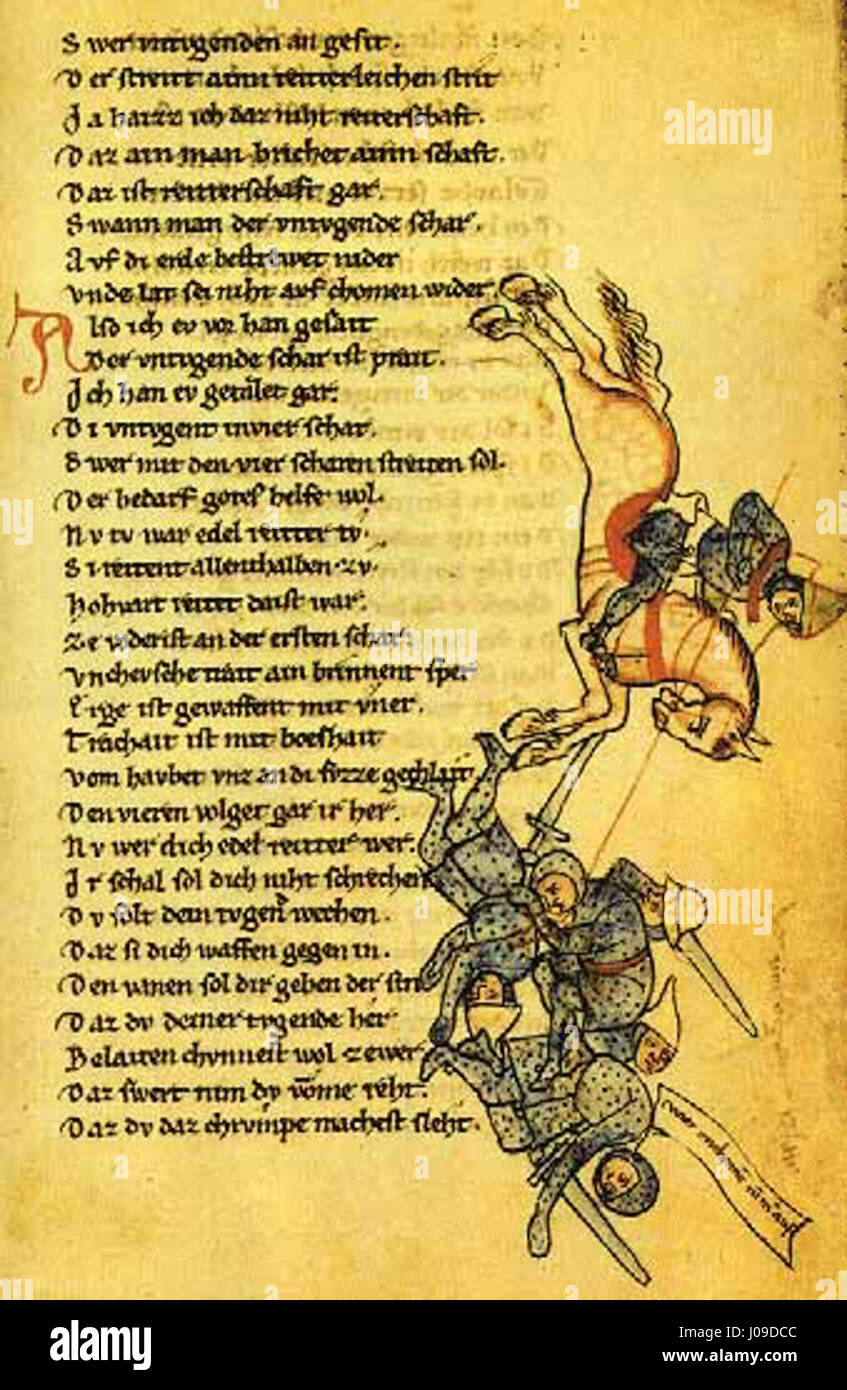 S wer vntvgenden an gesit.
D er streitt ainn reitterleichen strit
J a haizz ich daz niht reiterschaft.
D az ain man brichet ainn schaft.
D az ist reitterschaft gar.
S wann man der vntvgende schar.
A vf di erde bestrewet nider
vnde lat sei niht avf chomen wider
A lso ich ev vor han gesait
D er vntvgende schar ist prait.
J ch han ev getailet gar.
D i vntvgent in vier schar.
S wer mit den vier scharen streiten sol.
D er bedarf gotes helfe wol.
N v tv war edel reitter tv.
S i reitent allenthalben zv.
hohvart reitet daist war.
ze vorderist an der ersten schar.
vncheusche trait ain brinnent sper.
L ige ist gewaffent mit
T rachait ist mit boeshait
vom havbet vnz an di fvzze gechlait
D en vieren volget gar ir her.
N v wer dich edel reitter wer.
J r schal sol dich niht schrechen
D v solt dein tvgent wechen.
D az si dich waffen gegen in.
D en vanen sol dir geben der
D az dv deiner tvgende her
B elaiten chvnnest wol zewer
D az swert nim dv vome reht.
D az dv daz chrvmpe machest sleht.
alamy
Image ID: J09DCC
www.alamy.com